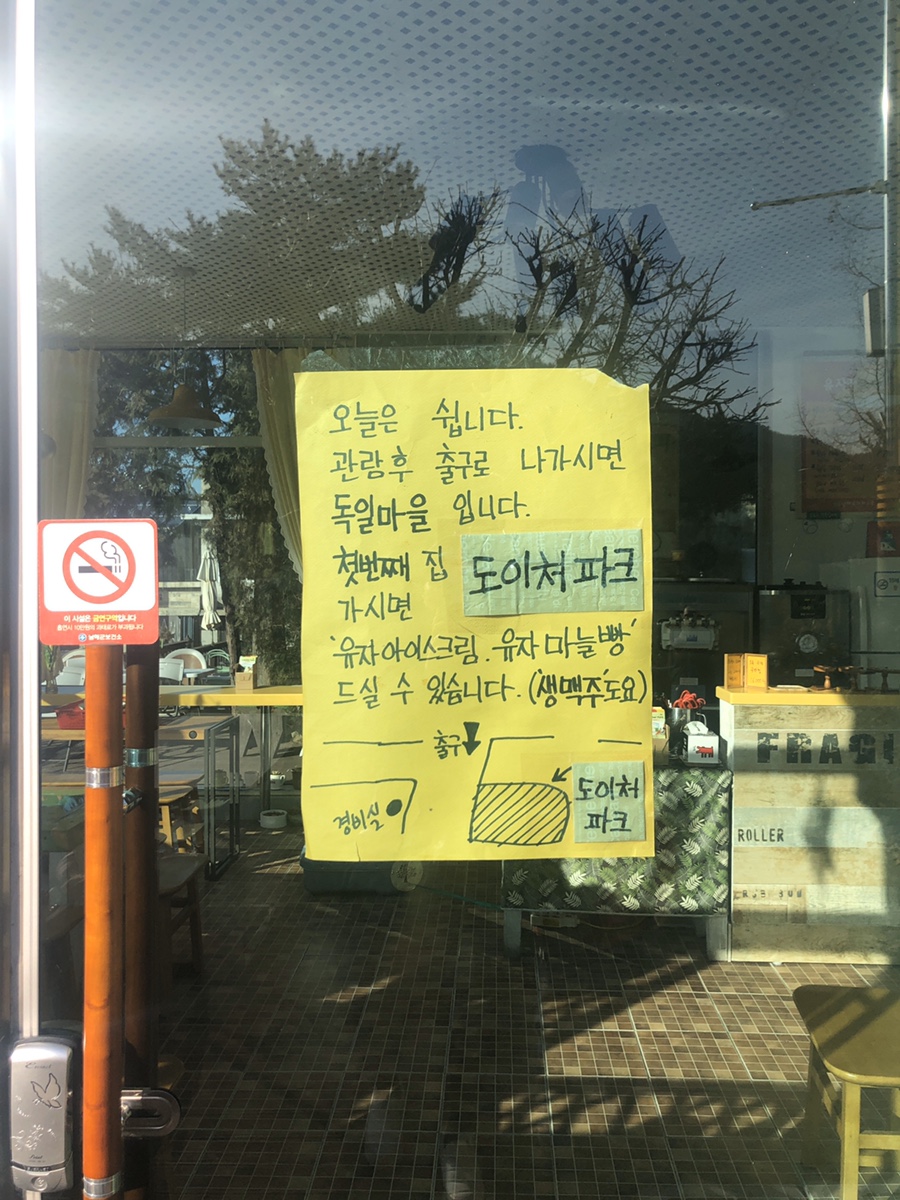 오늘은 쉽니다.
관람후 출구로 나가시면
독일마을 입니다.
첫번째 집 도이처파크
가시면
'유자아이스크림. 유자마늘빵'
드실 수 있습니다. ('생맥주'도요)
출구
경비실
도이처
파크
이 시설은 금연구역입니다
남해군보건소
FRAGI
ROLLER